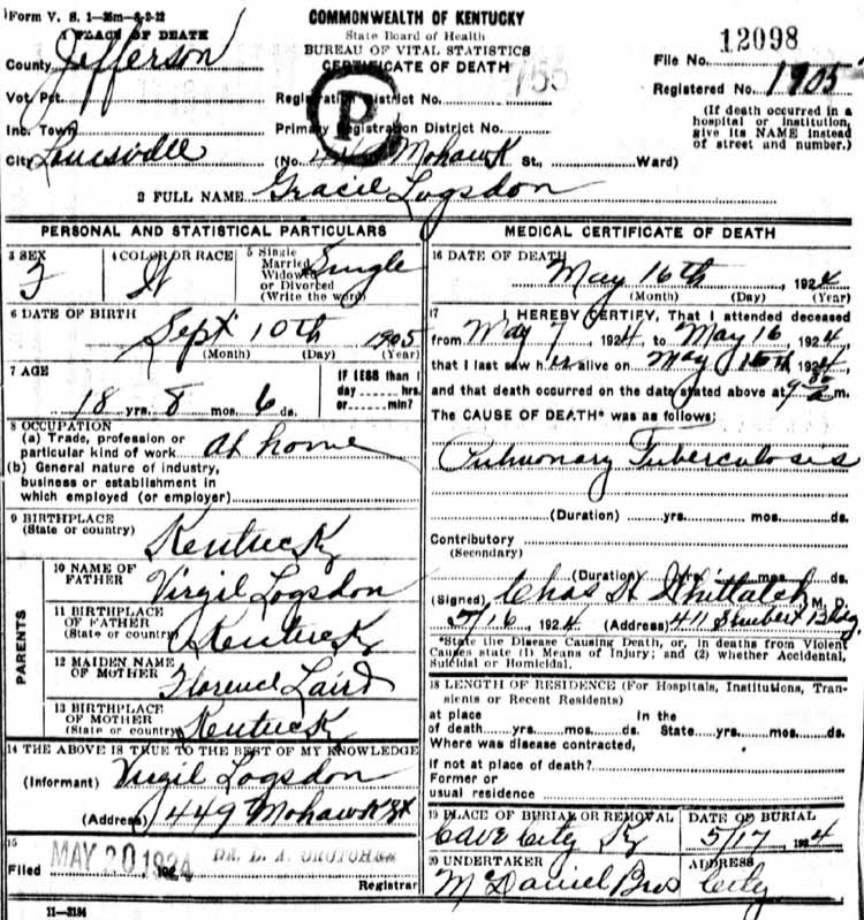 Form V. S. 1—
COMMONWEALTH OF KENTUCKY
State Board of Health
BUREAU OF VITAL STATISTICS
CERTIFICATE OF DEATH
1 PLACE OF DEATH
County Jefferson
File No. 12098
Vot. Pct.
Registration District No. 755
Registered No. 1905
Inc. Town
Primary Registration District No.
(If death occurred in a hospital or institution, give its NAME instead of street and number.)
P
City Louisville (No. Mohawk St., Ward)
2 FULL NAME Gracie Logsdon
PERSONAL AND STATISTICAL PARTICULARS
3 SEX F
4 COLOR OR RACE W
5 Single Married Widowed or Divorced (Write the word) Single
6 DATE OF BIRTH
Sept 10th 1905
(Month) (Day) (Year)
7 AGE
18 yrs. 8 mos. 6 ds.
IF LESS than 1 day hrs. or min?
8 OCCUPATION
(a) Trade, profession or particular kind of work at home
(b) General nature of industry, business or establishment in which employed (or employer)
9 BIRTHPLACE (State or country) Kentucky
PARENTS
10 NAME OF FATHER Virgil Logsdon
11 BIRTHPLACE OF FATHER (State or country) Kentucky
12 MAIDEN NAME OF MOTHER Florence Laird
13 BIRTHPLACE OF MOTHER (State or country) Kentucky
14 THE ABOVE IS TRUE TO THE BEST OF MY KNOWLEDGE
(Informant) Virgil Logsdon
(Address) 449 Mohawk St
15
Filed MAY 20 1924, 192
Registrar
11—2184
MEDICAL CERTIFICATE OF DEATH
16 DATE OF DEATH
May 16th, 1924
(Month) (Day) (Year)
17 I HEREBY CERTIFY, That I attended deceased
from May 7, 1924, to May 16, 1924,
that I last saw her alive on May 16th, 1924,
and that death occurred on the date stated above at m.
The CAUSE OF DEATH* was as follows:
Pulmonary Tuberculosis
(Duration) yrs. mos. ds.
Contributory
(Secondary)
(Duration) yrs. mos. ds.
(Signed) Chas W Whittatch M. D.
5/16, 1924 (Address) 411 Shubert Bldg.
*State the Disease Causing Death, or, in deaths from Violent
Causes state (1) Means of Injury; and (2) whether Accidental,
Suicidal or Homicidal.
18 LENGTH OF RESIDENCE (For Hospitals, Institutions, Tran-
sients or Recent Residents)
at place In the
of death yrs. mos. ds. State yrs. mos. ds.
Where was disease contracted,
If not at place of death?
Former or
usual residence
19 PLACE OF BURIAL OR REMOVAL
Cave City Ky
DATE OF BURIAL
5/17, 1924
20 UNDERTAKER
McDaniel Bros
ADDRESS
City